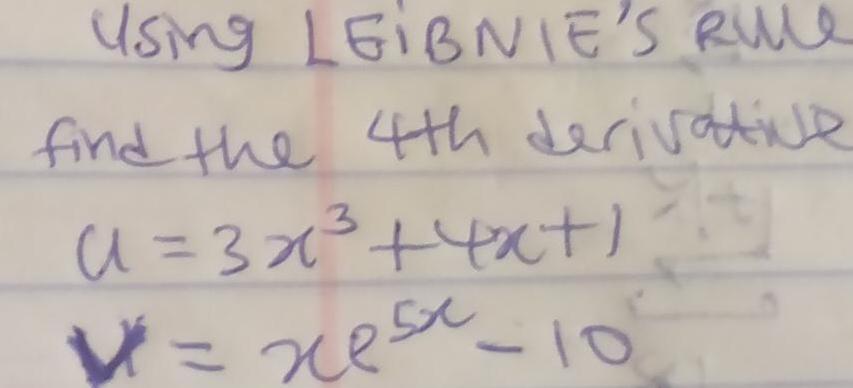 Using LEIBNIE'S Rule
find the 4th derivative
U = 3x³ + 4x + 1
V = xe⁵ˣ - 10